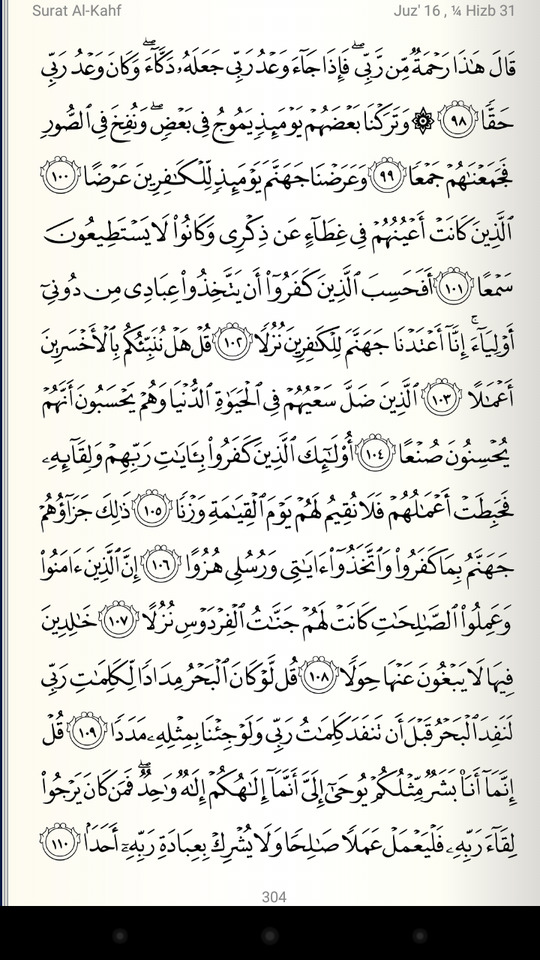 Surat Al-Kahf
Juz' 16 , ¼ Hizb 31
قَالَ هَٰذَا رَحْمَةٌ مِّن رَّبِّي ۖ فَإِذَا جَآءَ وَعْدُ رَبِّي جَعَلَهُۥ دَكَّآءَ ۖ وَكَانَ وَعْدُ رَبِّي
حَقًّا ٩٨ ۞ وَتَرَكْنَا بَعْضَهُمْ يَوْمَئِذٍ يَمُوجُ فِي بَعْضٍ ۖ وَنُفِخَ فِي ٱلصُّورِ
فَجَمَعْنَٰهُمْ جَمْعًا ٩٩ وَعَرَضْنَا جَهَنَّمَ يَوْمَئِذٍ لِّلْكَٰفِرِينَ عَرْضًا ١٠٠
ٱلَّذِينَ كَانَتْ أَعْيُنُهُمْ فِي غِطَآءٍ عَن ذِكْرِي وَكَانُوا۟ لَا يَسْتَطِيعُونَ
سَمْعًا ١٠١ أَفَحَسِبَ ٱلَّذِينَ كَفَرُوٓا۟ أَن يَتَّخِذُوا۟ عِبَادِي مِن دُونِيٓ
أَوْلِيَآءَ ۚ إِنَّآ أَعْتَدْنَا جَهَنَّمَ لِلْكَٰفِرِينَ نُزُلًا ١٠٢ قُلْ هَلْ نُنَبِّئُكُم بِٱلْأَخْسَرِينَ
أَعْمَٰلًا ١٠٣ ٱلَّذِينَ ضَلَّ سَعْيُهُمْ فِي ٱلْحَيَوٰةِ ٱلدُّنْيَا وَهُمْ يَحْسَبُونَ أَنَّهُمْ
يُحْسِنُونَ صُنْعًا ١٠٤ أُو۟لَٰٓئِكَ ٱلَّذِينَ كَفَرُوا۟ بِـَٔايَٰتِ رَبِّهِمْ وَلِقَآئِهِۦ
فَحَبِطَتْ أَعْمَٰلُهُمْ فَلَا نُقِيمُ لَهُمْ يَوْمَ ٱلْقِيَٰمَةِ وَزْنًا ١٠٥ ذَٰلِكَ جَزَآؤُهُمْ
جَهَنَّمُ بِمَا كَفَرُوا۟ وَٱتَّخَذُوٓا۟ ءَايَٰتِي وَرُسُلِي هُزُوًا ١٠٦ إِنَّ ٱلَّذِينَ ءَامَنُوا۟
وَعَمِلُوا۟ ٱلصَّٰلِحَٰتِ كَانَتْ لَهُمْ جَنَّٰتُ ٱلْفِرْدَوْسِ نُزُلًا ١٠٧ خَٰلِدِينَ
فِيهَا لَا يَبْغُونَ عَنْهَا حِوَلًا ١٠٨ قُل لَّوْ كَانَ ٱلْبَحْرُ مِدَادًا لِّكَلِمَٰتِ رَبِّي
لَنَفِدَ ٱلْبَحْرُ قَبْلَ أَن تَنفَدَ كَلِمَٰتُ رَبِّي وَلَوْ جِئْنَا بِمِثْلِهِۦ مَدَدًا ١٠٩ قُلْ
إِنَّمَآ أَنَا۠ بَشَرٌ مِّثْلُكُمْ يُوحَىٰٓ إِلَيَّ أَنَّمَآ إِلَٰهُكُمْ إِلَٰهٌ وَٰحِدٌ ۖ فَمَن كَانَ يَرْجُوا۟
لِقَآءَ رَبِّهِۦ فَلْيَعْمَلْ عَمَلًا صَٰلِحًا وَلَا يُشْرِكْ بِعِبَادَةِ رَبِّهِۦٓ أَحَدًۢا ١١٠
304